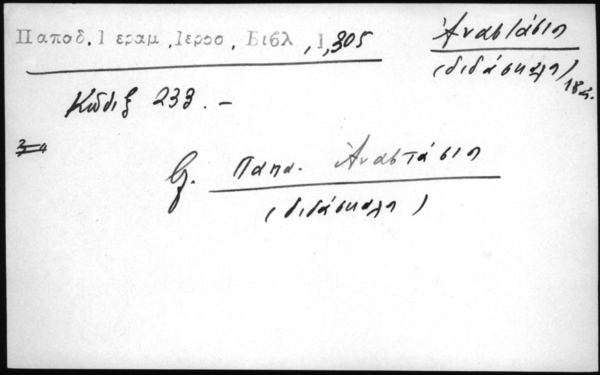 Παποδ. Ιεραμ. Ιεροσ. Βιβλ, Ι, 305
Ἀναστάσιος
(διδάσκαλος) 18 αι.
Κῶδιξ 233. –
3-4
Παπα. Ἀναστάσιος
(διδάσκαλος)